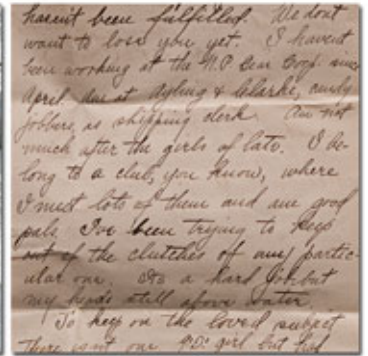 hasen't been fulfilled. We dont
want to lose you yet. I havent
been working at the N.P. Gear Corp. since
April. Am at Ayling & Clarke, candy
jobbers, as shipping clerk. Am not
much after the girls of late. I be-
long to a club, you know, where
I meet lots of them and are good
pals. Ive been trying to keep
out of the clutches of any partic-
ular one. Its a hard job but
my heads still above water.
To keep on the loved subject
There isnt one girl but